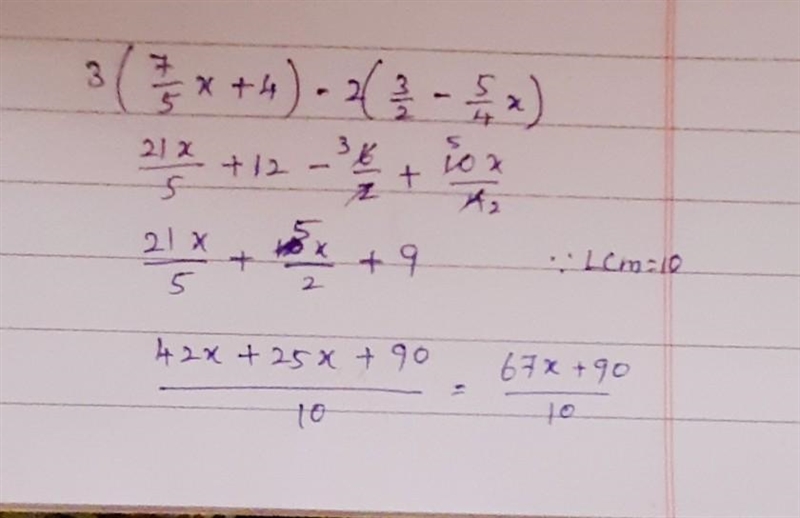 3(7/5 x + 4) - 2(3/2 - 5/4 x)
21x/5 + 12 - 3 6/2 + 5 10x/4 2
21x/5 + 5x/2 + 9 ∵ LCm=10
42x + 25x + 90 / 10 = 67x + 90 / 10